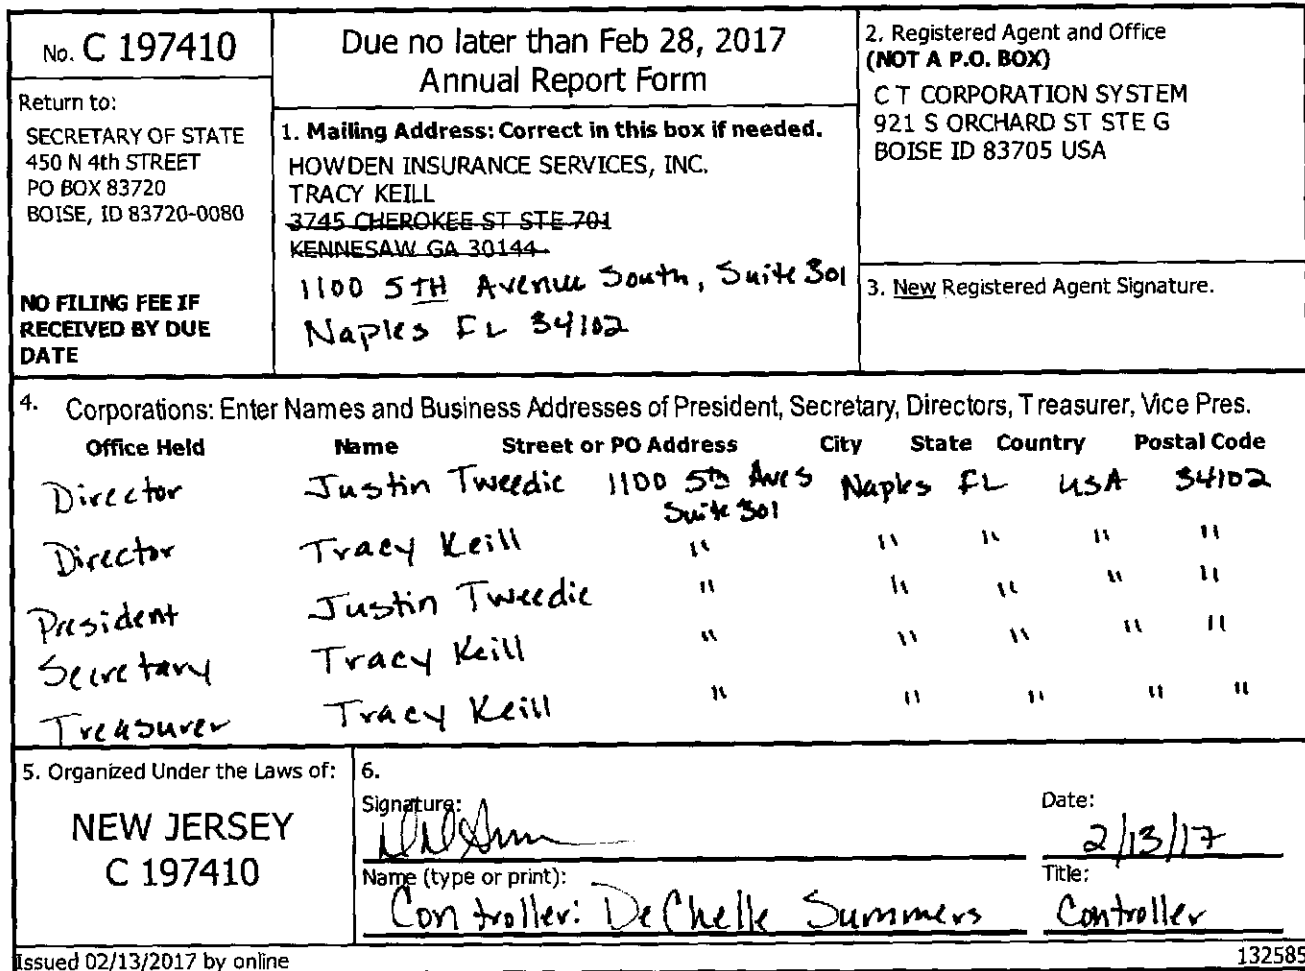 No. C 197410
Return to:
SECRETARY OF STATE
450 N 4th STREET
PO BOX 83720
BOISE, ID 83720-0080
NO FILING FEE IF
RECEIVED BY DUE
DATE
Due no later than Feb 28, 2017
Annual Report Form
1. Mailing Address: Correct in this box if needed.
HOWDEN INSURANCE SERVICES, INC.
TRACY KEILL
3745 CHEROKEE ST STE 701
KENNESAW GA 30144
1100 5TH Avenue South, Suite 301
Naples FL 34102
2. Registered Agent and Office
(NOT A P.O. BOX)
C T CORPORATION SYSTEM
921 S ORCHARD ST STE G
BOISE ID 83705 USA
3. New Registered Agent Signature.
4. Corporations: Enter Names and Business Addresses of President, Secretary, Directors, Treasurer, Vice Pres.
Office Held Name Street or PO Address City State Country Postal Code
Director Justin Tweedie 1100 5th Ave S Naples FL USA 34102
Suite 301
Director Tracy Keill " " " " "
President Justin Tweedie " " " " "
Secretary Tracy Keill " " " " "
Treasurer Tracy Keill " " " " "
5. Organized Under the Laws of:
NEW JERSEY
C 197410
6.
Signature:
Date:
2/13/17
Name (type or print):
Controller: DeChelle Summers
Title:
Controller
Issued 02/13/2017 by online
132585